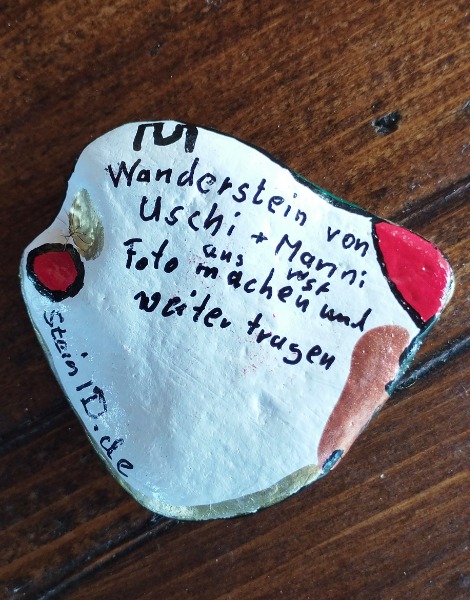 Wanderstein von
Uschi + Manni
aus WST
Foto machen und
weiter tragen
Stein ID.de